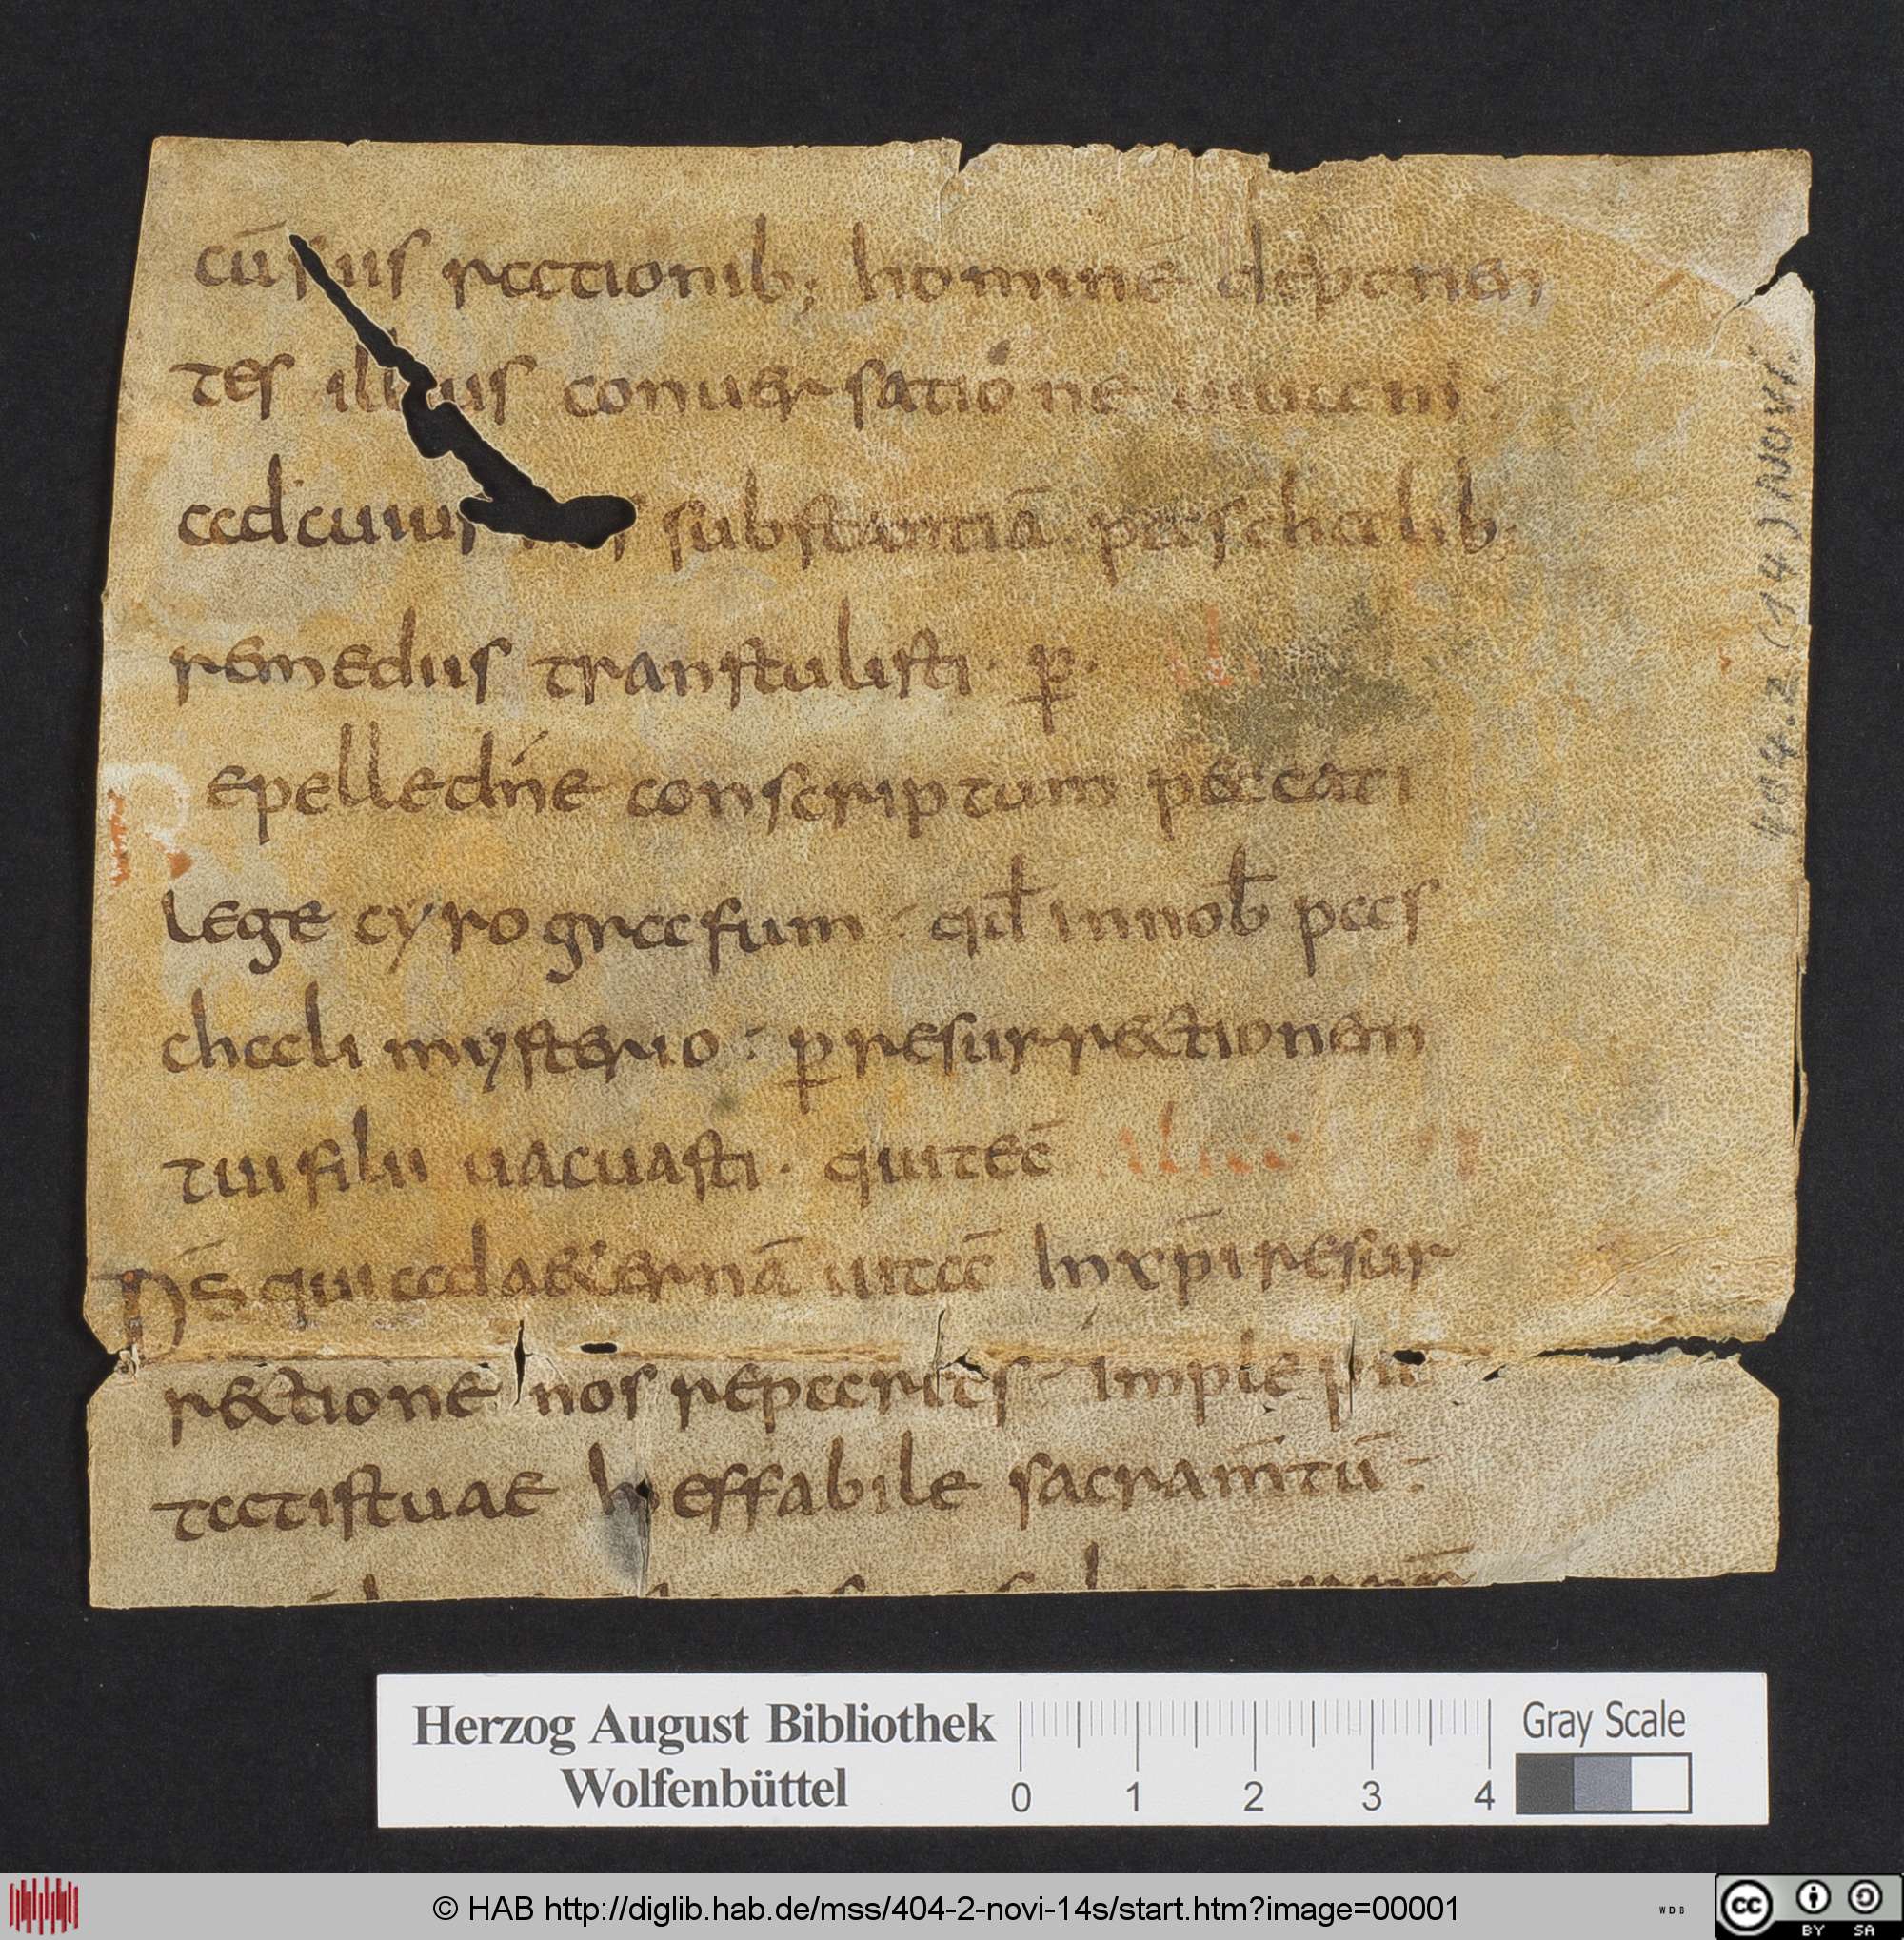 cū suis actionib; hominē deponen
tes illius conuersatione uiuam .
ad cuius nos substantiā . paschalib;
remediis transtulisti . ꝑ . Al
epelle dn̄e conscriptum peccati
lege cyrografum . qđ in nob̄ pas
chali mysterio : ꝑ resurrectionem
tui filii uacuasti . qui tec̄ alia
Ds̄ qui ad aeternā uitā In xp̄i resur
rectione nos reparas . Imple pie
tatis tuae Ineffabile sacram̄tū :
404.2 (14) Novi.
Herzog August Bibliothek
Wolfenbüttel
0 1 2 3 4
Gray Scale
© HAB http://diglib.hab.de/mss/404-2-novi-14s/start.htm?image=00001
WDB
cc BY SA